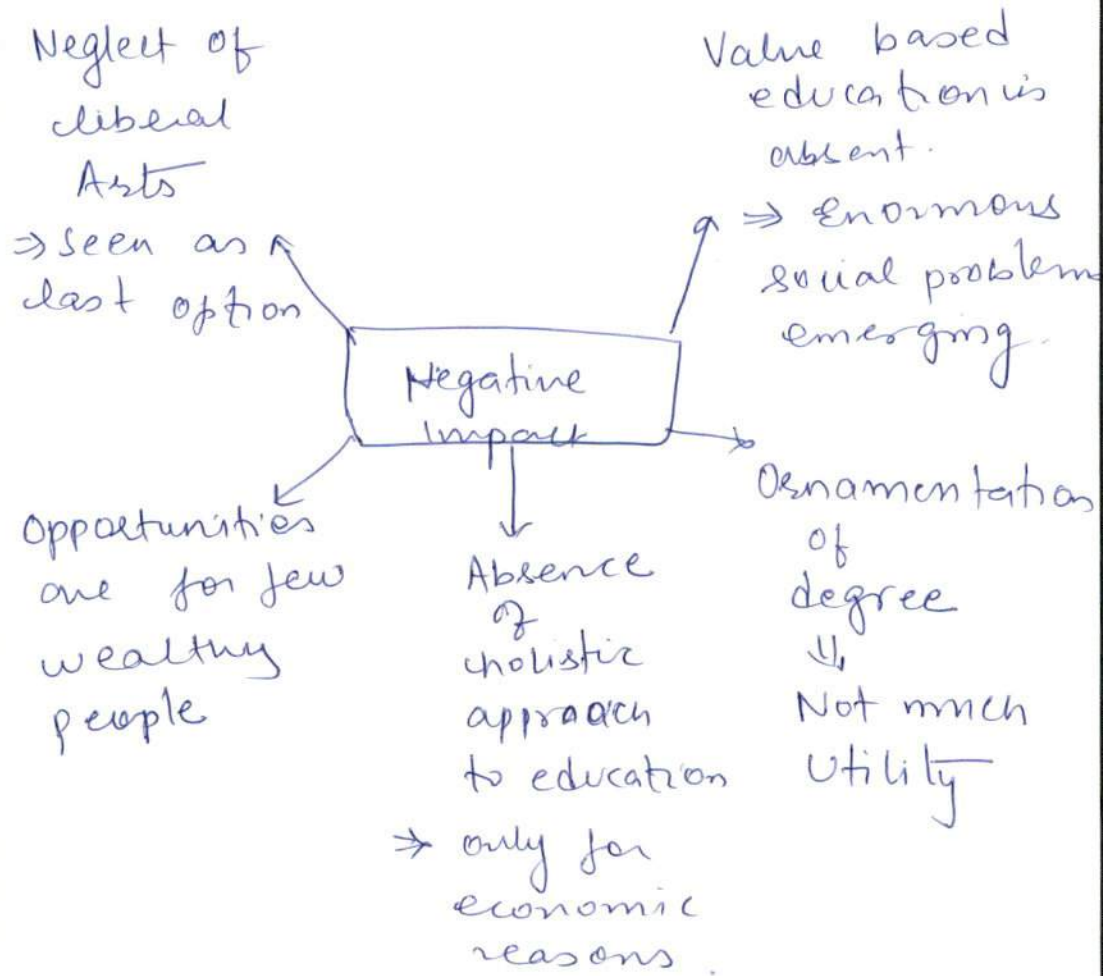 Neglect of
liberal
Arts
⇒ seen as
last option
Value based
education is
absent.
⇒ Enormous
social problems
emerging.
Negative
Impact
Opportunities
are for few
wealthy
people
Absence
of
holistic
approach
to education
⇒ only for
economic
reasons.
Ornamentation
of
degree
⇓
Not much
Utility